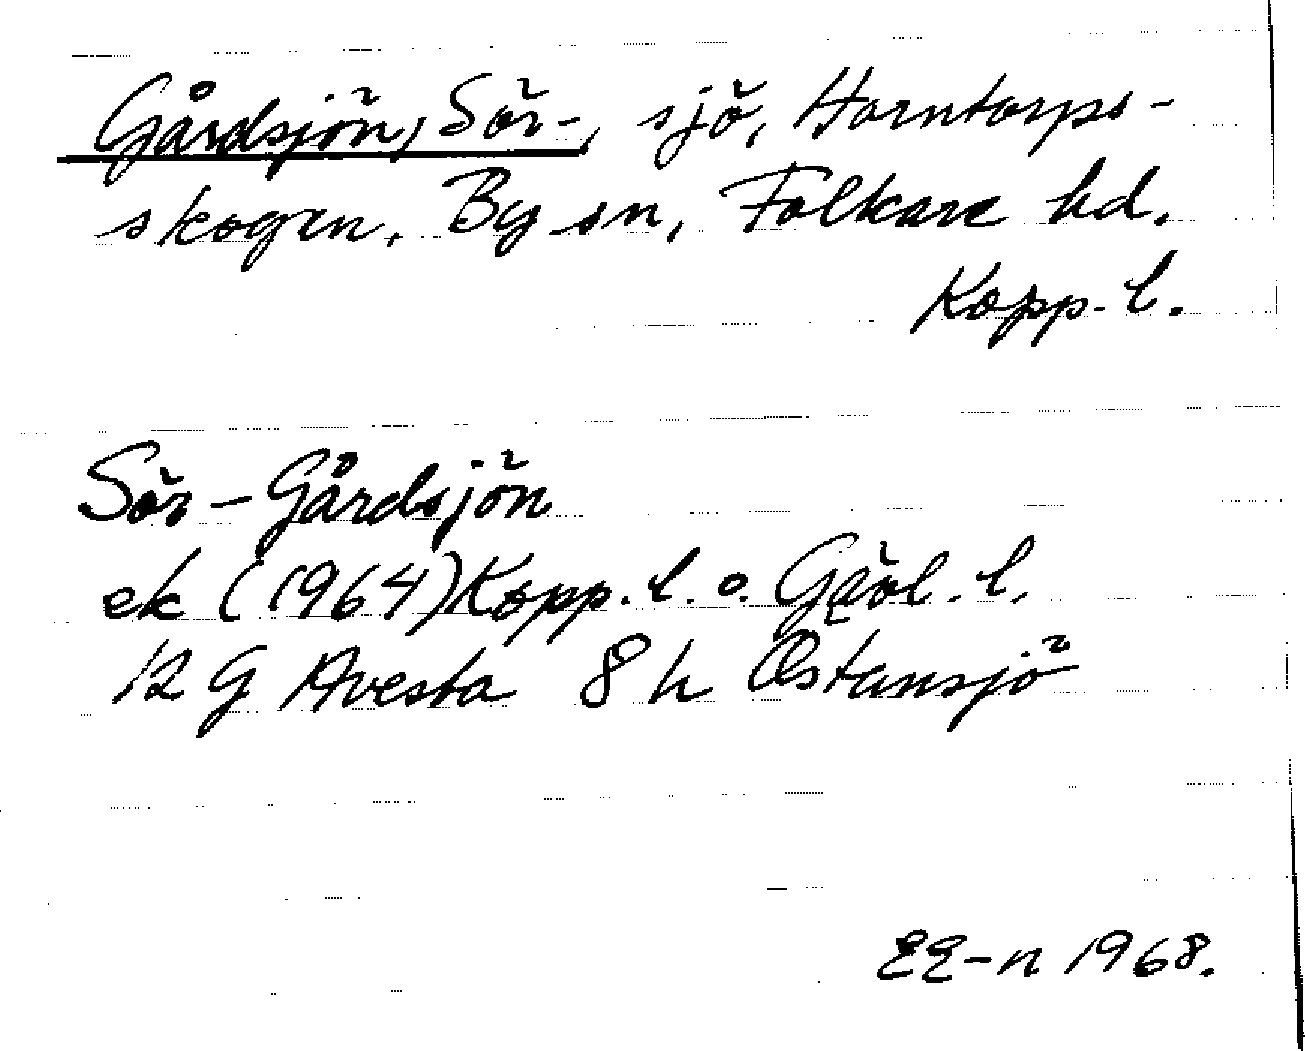 Gårdsjön, Sör-, sjö, Horntorps-
skogen. By sn, Folkare hd.
Kopp. l.
Sör-Gårdsjön
ek (1964) Kopp. l. o. Gävl. l.
12 G Avesta 8 h Östansjö
EE-n 1968.